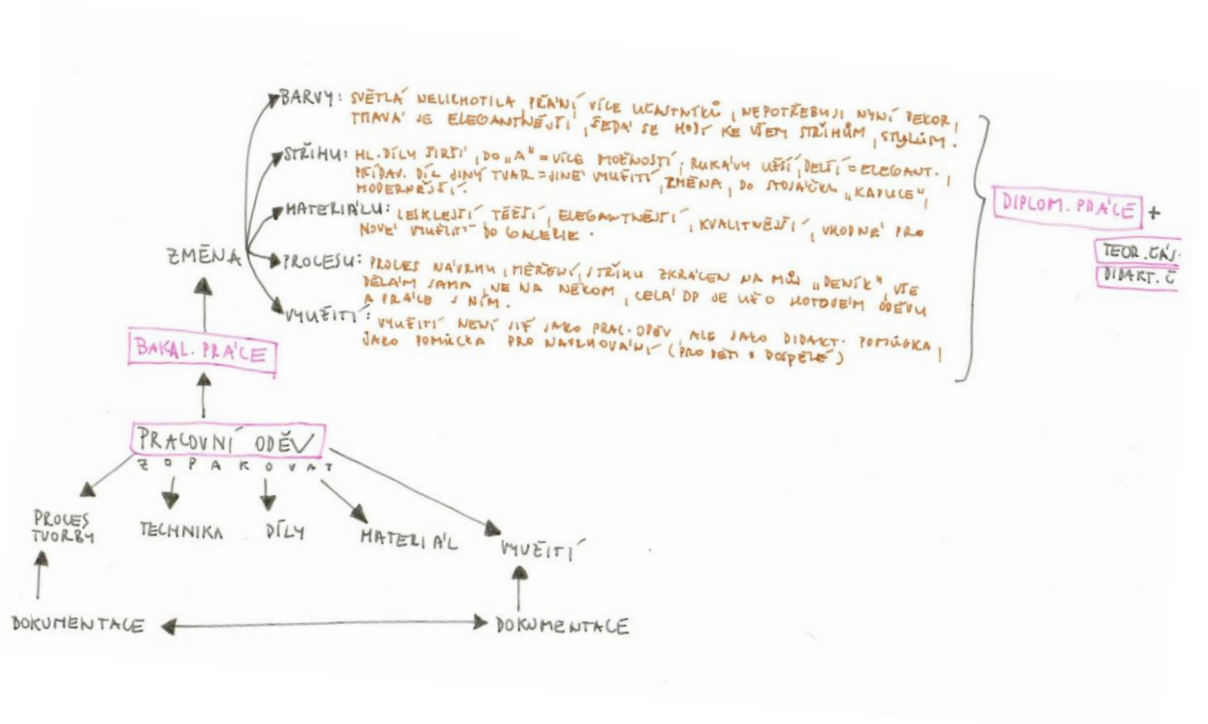 BARVY: SVĚTLÁ NELICHOTILA, PŘÁNÍ VÍCE ÚČASTNÍKŮ, NEPOTŘEBUJI NYNÍ DEKOR,
TMAVÁ JE ELEGANTNĚJŠÍ, ŠEDÁ SE HODÍ KE VŠEM STŘIHŮM, STYLŮM.
STŘIHU: HL. DÍLY ŠIRŠÍ, DO „A" = VÍCE MOŽNOSTÍ, RUKÁVY UŽŠÍ, DELŠÍ = ELEGANT.,
PŘÍDAV. DÍL JINÝ TVAR = JINÉ VYUŽITÍ, ZMĚNA, DO STOJÁČKU „KAPUCE",
MODERNĚJŠÍ.
MATERIÁLU: LESKLEJŠÍ TĚŽŠÍ, ELEGANTNĚJŠÍ, KVALITNĚJŠÍ, VHODNÉ PRO
NOVÉ VYUŽITÍ DO GALERIE.
DIPLOM. PRÁCE +
TEOR. ČÁS.
DIDAKT. Č
ZMĚNA
PROCESU: PROCES NÁVRHU, MĚŘENÍ, STŘIHU ZKRÁCEN NA MŮJ „DENÍK", VŠE
DĚLÁM SAMA, NE NA NĚKOM, CELÁ DP JE UŽ O HOTOVÉM ODĚVU
A PRÁCE S NÍM.
VYUŽITÍ: VYUŽITÍ NENÍ JIŽ JAKO PRAC. ODĚV, ALE JAKO DIDAKT. POMŮCKA,
JAKO POMŮCKA PRO NAVRHOVÁNÍ (PRO DĚTI I DOSPĚLÉ)
BAKAL. PRÁCE
PRACOVNÍ ODĚV
ZOPAKOVAT
PROCES
TVORBY
TECHNIKA
DÍLY
MATERIÁL
VYUŽITÍ
DOKUMENTACE
DOKUMENTACE